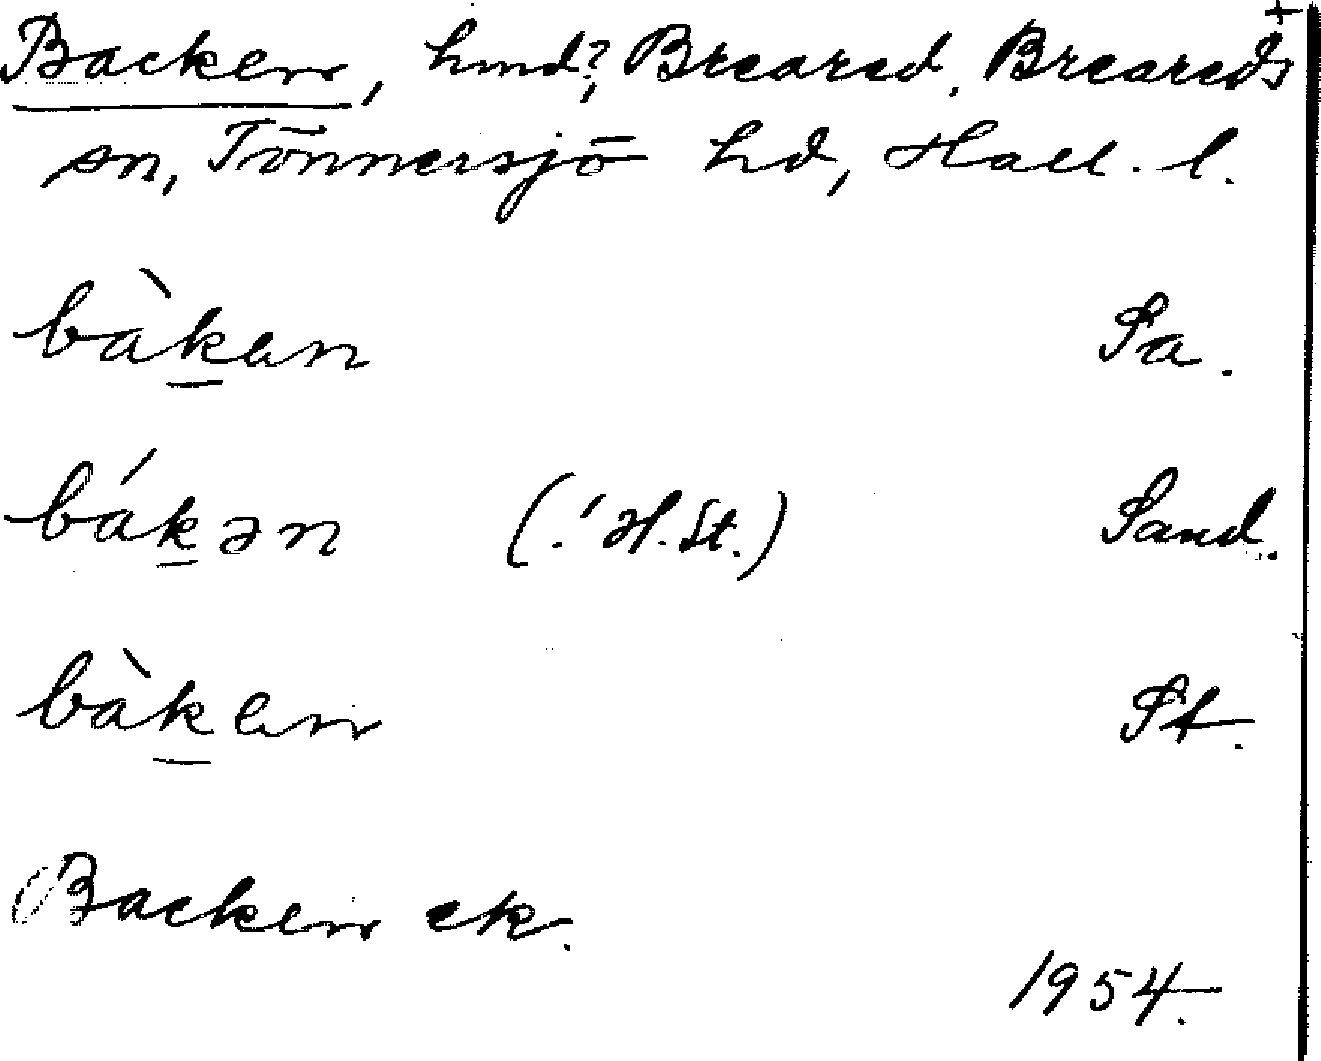 Backen, hmd?, Breared, Breareds +
sn, Tönnersjö hd, Hall. l.
bàk̲en Sa.
bák̲ən (.' H.St.) Sand.
bàk̲en St.
Backen ek.
1954.